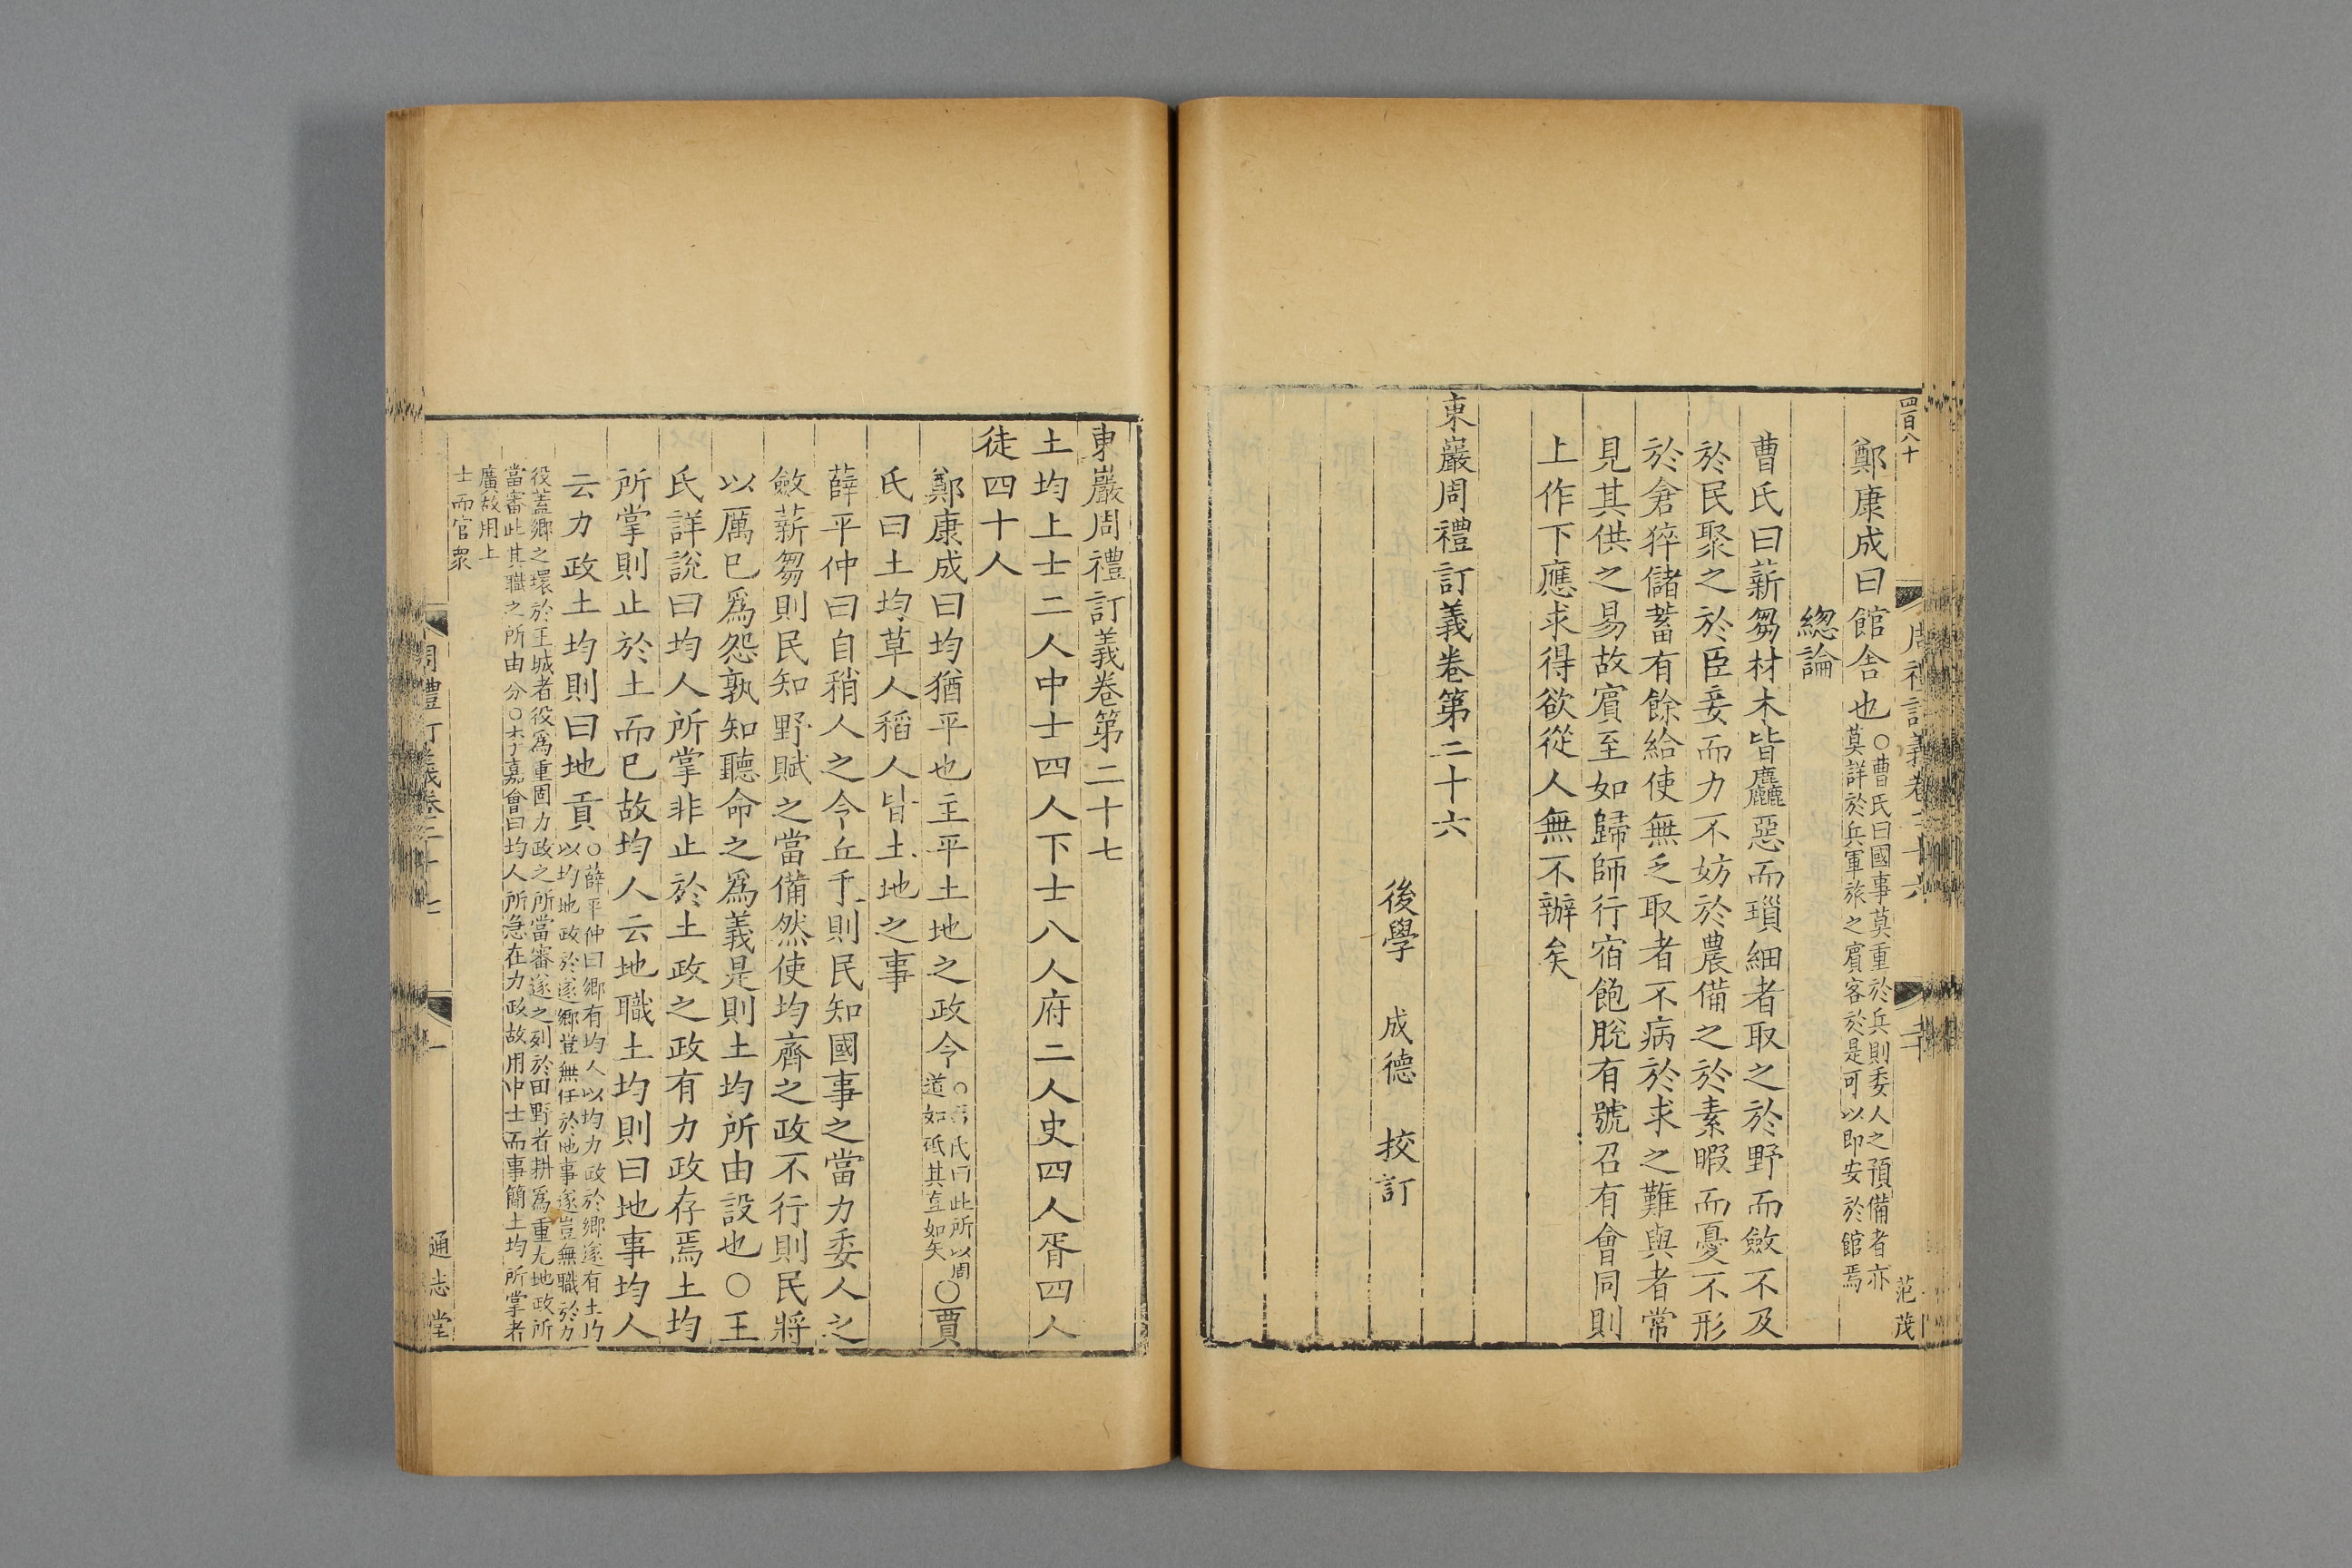 四百八十
周禮訂義卷二十六
二十
范茂
鄭康成曰館舍也○曹氏曰國事莫重於兵則委人之預備者亦
莫詳於兵軍旅之賓客於是可以即安於館焉
緫論
曹氏曰薪芻材木皆麤惡而瑣細者取之於野而斂不及
於民聚之於臣妾而力不妨於農備之於素暇而憂不形
於倉猝儲蓄有餘給使無乏取者不病於求之難與者常
見其供之易故賓至如歸師行宿飽脫有號召有會同則
上作下應求得欲從人無不辦矣
東巖周禮訂義卷第二十六
後學 成德 挍訂
東巖周禮訂義卷第二十七
土均上士二人中士四人下士八人府二人史四人胥四人
徒四十人
鄭康成曰均猶平也主平土地之政令
○ 氏曰此所以周
道如砥其直如矢○賈
氏曰土均草人稻人皆土地之事
薛平仲曰自稍人之令丘乘則民知國事之當力委人之
斂薪芻則民知野賦之當備然使均齊之政不行則民將
以厲已爲怨孰知聽命之爲義是則土均所由設也○王
氏詳說曰均人所掌非止於土政之政有力政存焉土均
所掌則止於土而已故均人云地職土均則曰地事均人
云力政土均則曰地貢○薛平仲曰鄉有均人以均力政於鄉遂有土均
以均地政於遂鄉豈無任於地事遂豈無職於力
役蓋鄉之環於王城者役爲重固力政之所當審遂之列於田野者耕爲重尤地政所
當審此其職之所由分○李嘉會曰均人所急在力政故用中士而事簡土均所掌者
廣故用上
士而官衆
周禮訂義卷二十七
一
通志堂